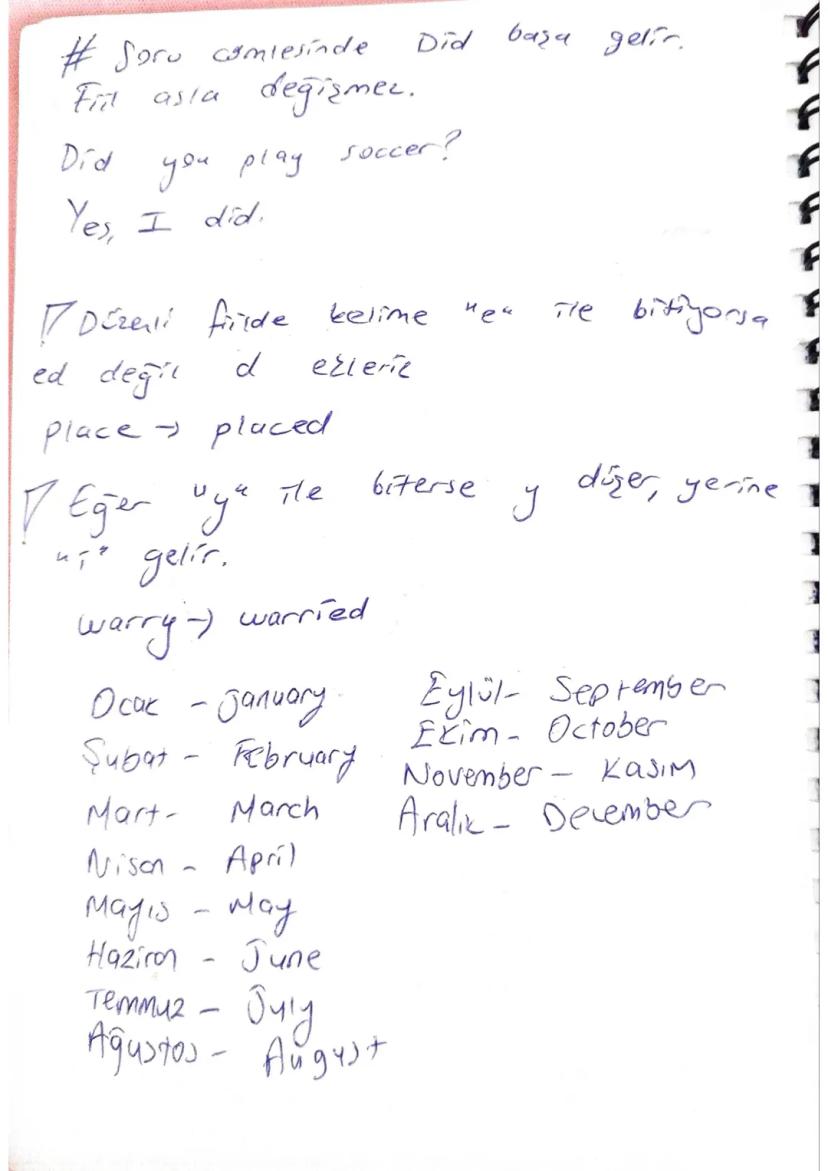 # Soru cümlesinde Did başa gelir.
Fiil asla değişmez.
Did you play soccer?
Yes, I did.
Düzenli fiilde kelime "e" ile bitiyorsa
ed değil d ekleriz
place → placed
Eğer "y" ile biterse y düşer, yerine
"i" gelir.
warry → warried
Ocak - January
Şubat - February
Mart - March
Nisan - April
Mayıs - May
Haziran - June
Temmuz - July
Ağustos - August
Eylül - September
Ekim - October
November - Kasım
Aralık - December